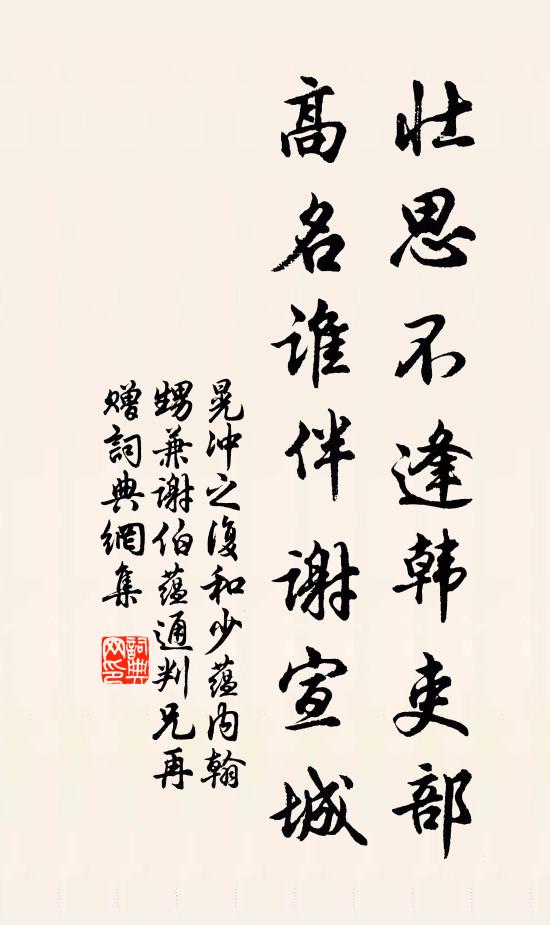 壮思不逢韩吏部
高名谁伴谢宣城
晁冲之復和少蕴内翰
甥兼谢伯蕴通判兄再
赠詞典網集
詞典
网印